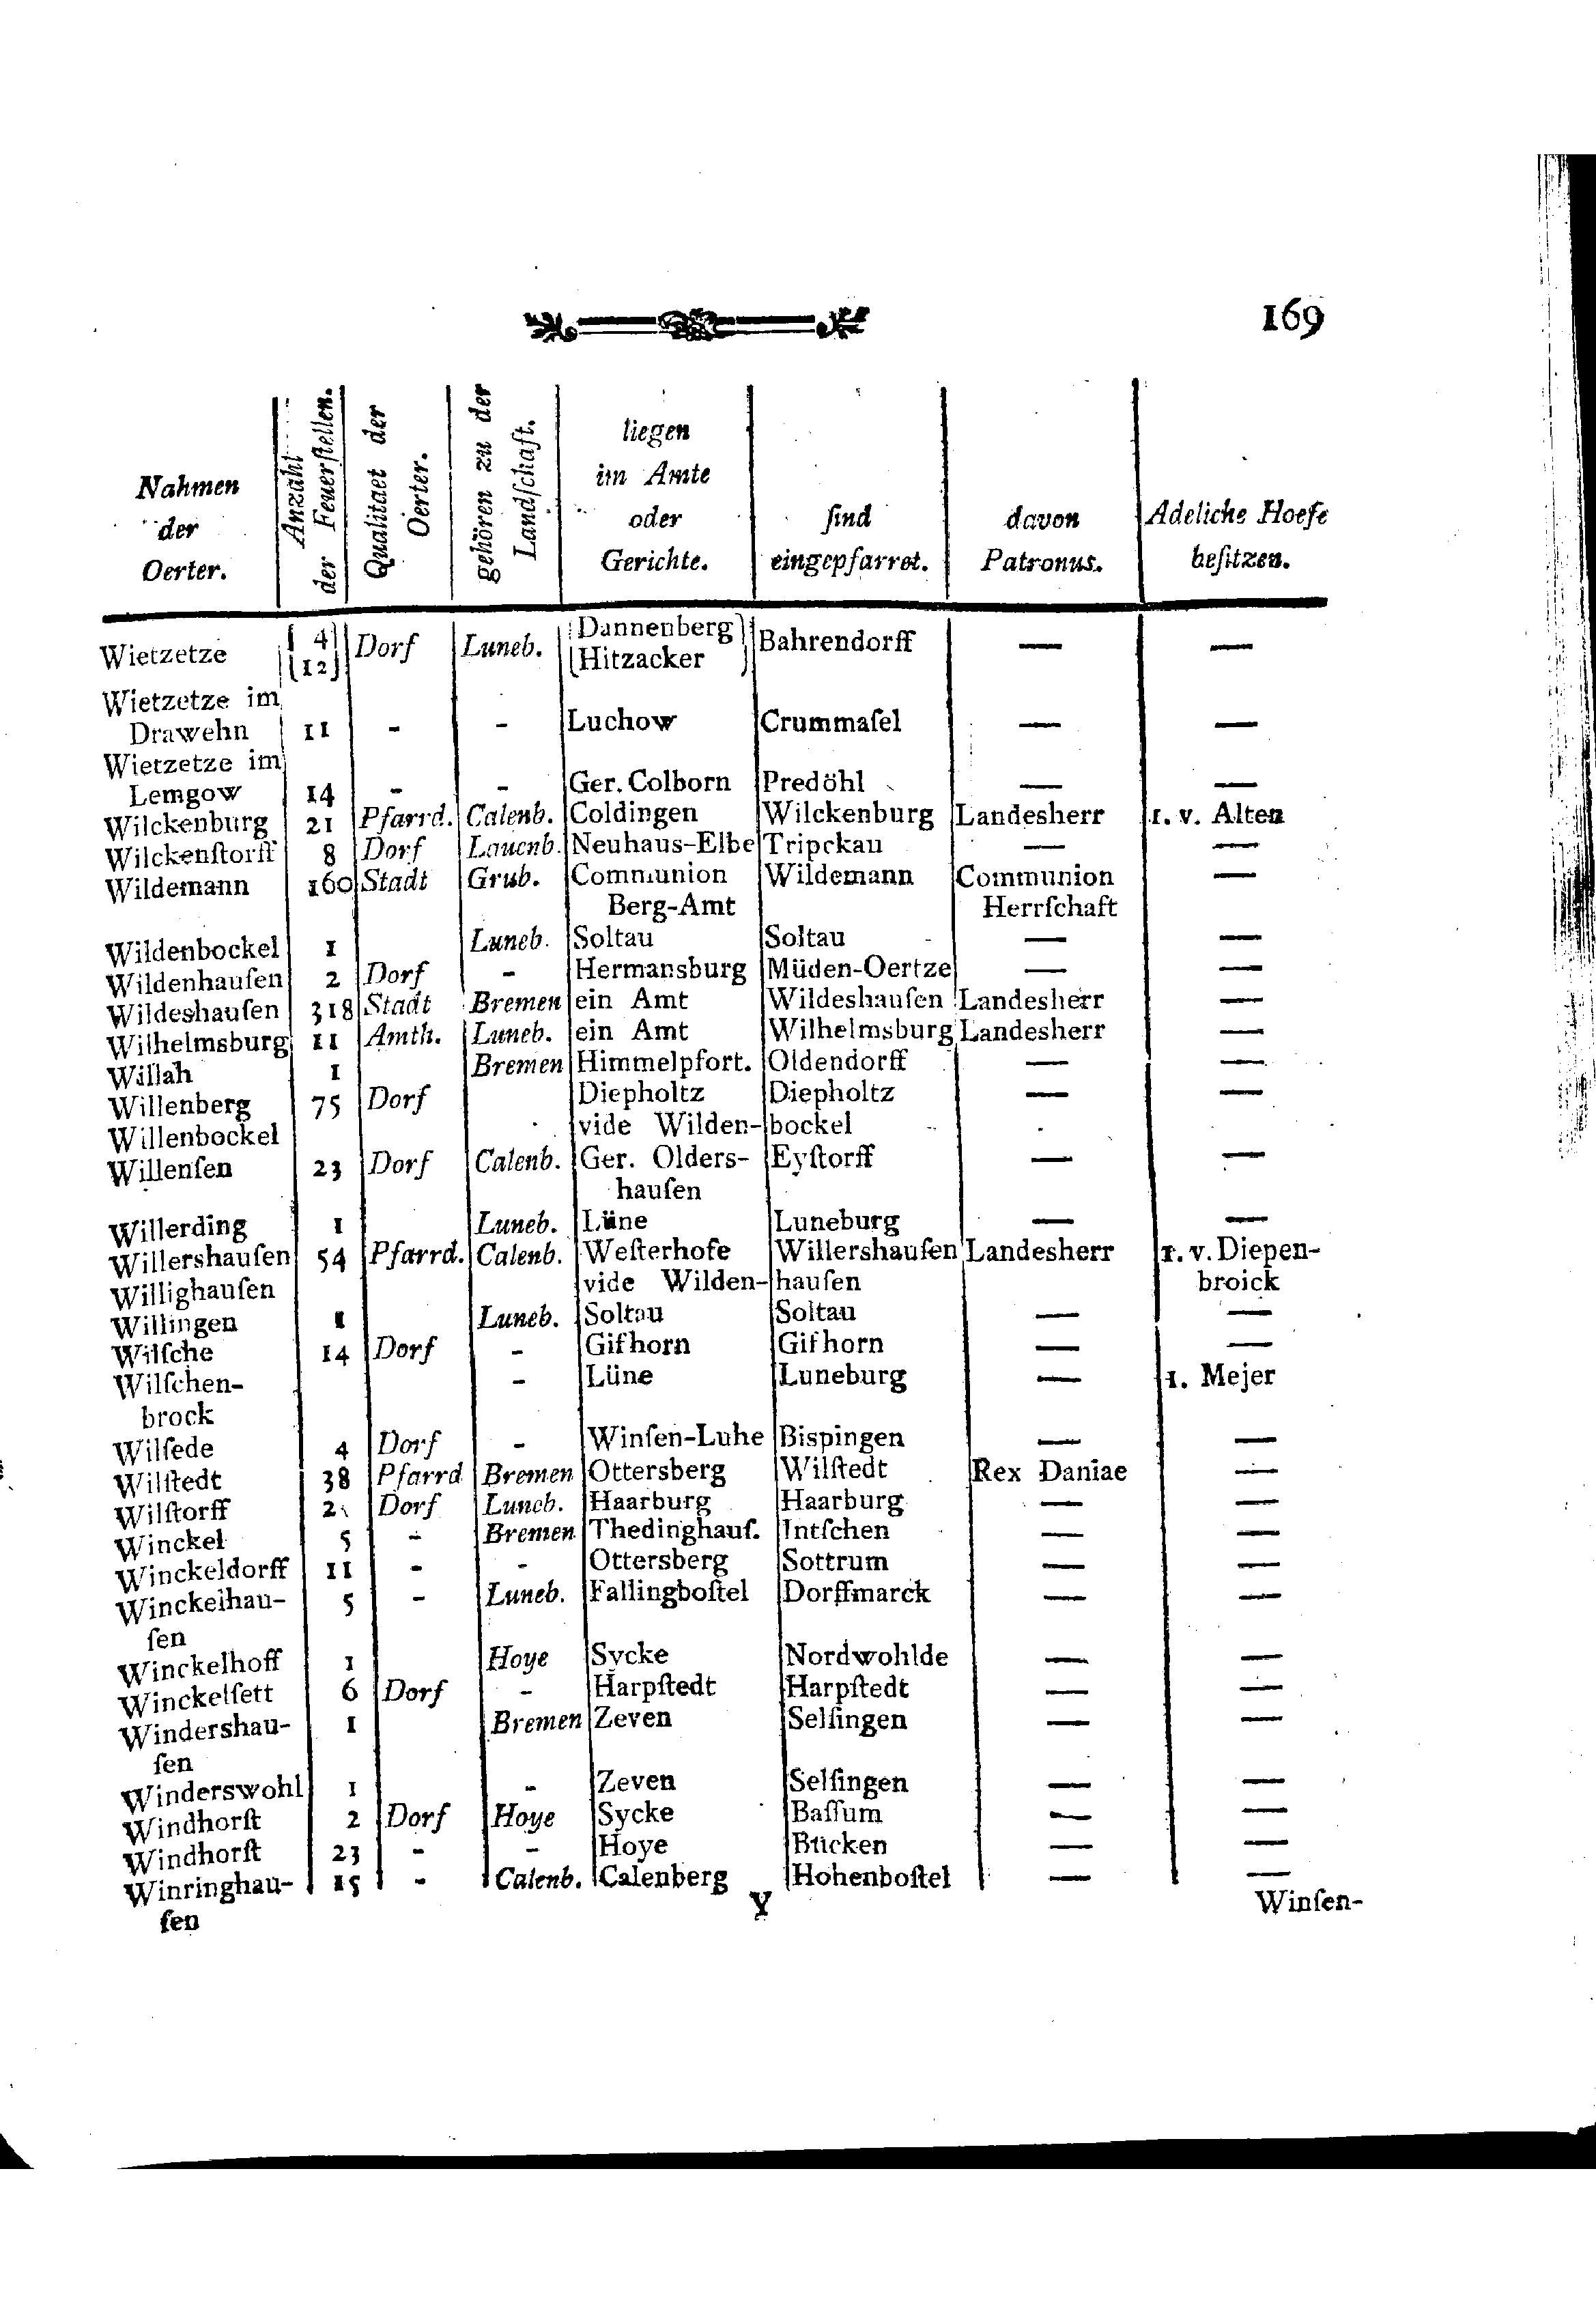 169
Nahmen der Oerter. | Anzahl der Feuerſtellen. | Qualitaet der Oerter. | gehören zu der Landſchaft. | liegen im Amte oder Gerichte. | ſind eingepfarret. | davon Patronus. | Adeliche Hoefe beſitzen.
Wietzetze | 4 | Dorf | Luneb. | Dannenberg | Bahrendorff | — | —
12 | Hitzacker
Wietzetze im
Drawehn | 11 | - | - | Luchow | Crummaſel | — | —
Wietzetze im
Lemgow | 14 | - | - | Ger. Colborn | Predöhl | — | —
Wilckenburg | 21 | Pfarrd. | Calenb. | Coldingen | Wilckenburg | Landesherr | 1. v. Alten
Wilckenſtorff | 8 | Dorf | Lauenb. | Neuhaus-Elbe | Tripckau | — | —
Wildemann | 160 | Stadt | Grub. | Communion | Wildemann | Communion | —
Berg-Amt | Herrſchaft
Wildenbockel | 1 | Luneb. | Soltau | Soltau | — | —
Wildenhauſen | 2 | Dorf | - | Hermansburg | Müden-Oertze | — | —
Wildeshauſen | 318 | Stadt | Bremen | ein Amt | Wildeshauſen | Landesherr | —
Wilhelmsburg | 11 | Amth. | Luneb. | ein Amt | Wilhelmsburg | Landesherr | —
Willah | 1 | Bremen | Himmelpfort. | Oldendorff | — | —
Willenberg | 75 | Dorf | Diepholtz | Diepholtz | — | —
Willenbockel | vide Wilden-bockel
Willenſen | 23 | Dorf | Calenb. | Ger. Olders- | Eyſtorff | — | —
hauſen
Willerding | 1 | Luneb. | Lüne | Luneburg | — | —
Willershauſen | 54 | Pfarrd. | Calenb. | Weſterhofe | Willershauſen | Landesherr | 1. v. Diepen-
Willighauſen | vide Wilden-hauſen | broick
Willingen | 1 | Luneb. | Soltau | Soltau | — | —
Wilſche | 14 | Dorf | - | Gifhorn | Gifhorn | — | —
Wilſchen- | - | Lüne | Luneburg | — | 1. Mejer
brock
Wilſede | 4 | Dorf | - | Winſen-Luhe | Bispingen | — | —
Wilſtedt | 38 | Pfarrd | Bremen | Ottersberg | Wilſtedt | Rex Daniae | —
Wilſtorff | Dorf | Luneb. | Haarburg | Haarburg | — | —
Winckel | 5 | - | Bremen | Thedinghauſ. | Intſchen | — | —
Winckeldorff | 11 | - | - | Ottersberg | Sottrum | — | —
Winckelhau- | 5 | - | Luneb. | Fallingboſtel | Dorffmarck | — | —
ſen
Winckelhoff | 1 | Hoye | Sycke | Nordwohlde | — | —
Winckelſett | 6 | Dorf | - | Harpſtedt | Harpſtedt | — | —
Windershau- | 1 | Bremen | Zeven | Selſingen | — | —
ſen
Winderswohl | 1 | - | Zeven | Selſingen | — | —
Windhorſt | 2 | Dorf | Hoye | Sycke | Baſſum | — | —
Windhorſt | 23 | - | - | Hoye | Bücken | — | —
Winringhau- | 15 | - | Calenb. | Calenberg | Hohenboſtel | — | —
ſen
Y
Winſen-